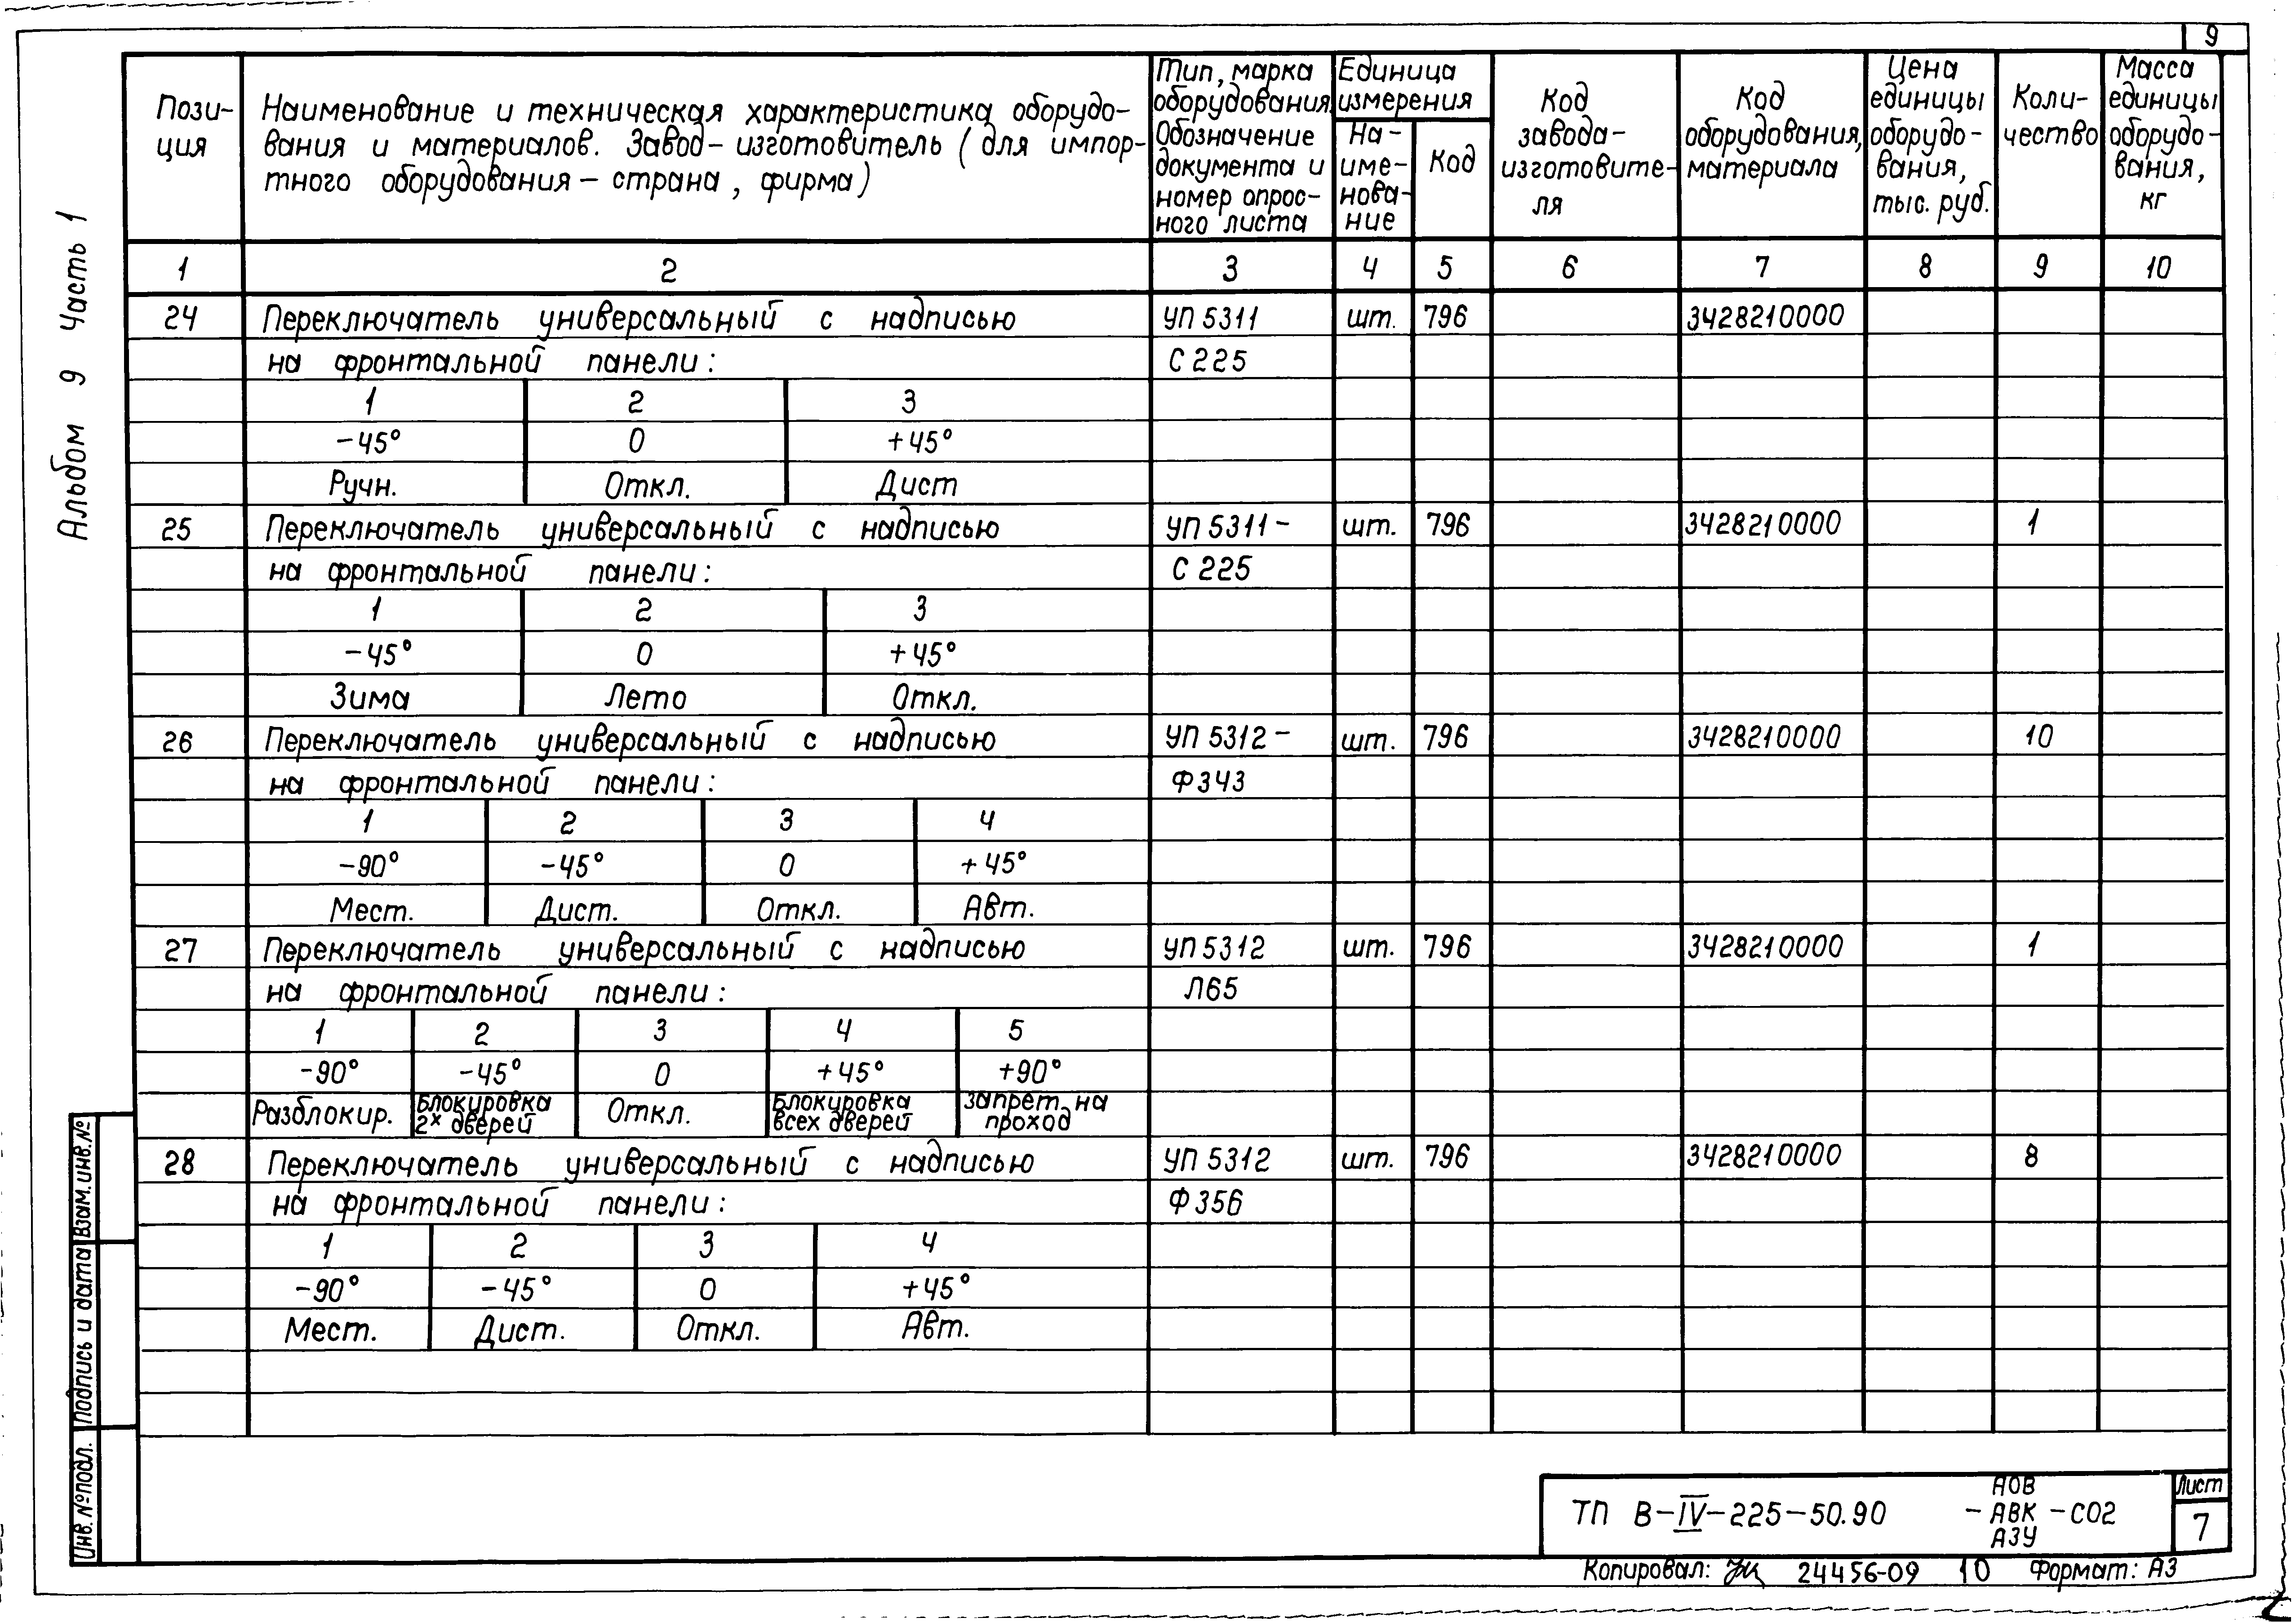 9
Альбом 9 Часть 1
Пози-
ция
Наименование и техническая характеристика оборудо-
вания и материалов. Завод-изготовитель (для импор-
тного оборудования - страна, фирма)
Тип, марка
оборудования.
Обозначение
документа и
номер опрос-
ного листа
Единица
измерения
На-
име-
нова-
ние
Код
Код
завода-
изготовите-
ля
Код
оборудования,
материала
Цена
единицы
оборудо-
вания,
тыс. руб.
Коли-
чество
Масса
единицы
оборудо-
вания,
кг
1 2 3 4 5 6 7 8 9 10
24 Переключатель универсальный с надписью УП 5311 шт. 796 3428210000
на фронтальной панели: С 225
1 2 3
-45° 0 +45°
Ручн. Откл. Дист
25 Переключатель универсальный с надписью УП 5311- шт. 796 3428210000 1
на фронтальной панели: С 225
1 2 3
-45° 0 +45°
Зима Лето Откл.
26 Переключатель универсальный с надписью УП 5312- шт. 796 3428210000 10
на фронтальной панели: Ф343
1 2 3 4
-90° -45° 0 +45°
Мест. Дист. Откл. Авт.
27 Переключатель универсальный с надписью УП 5312 шт. 796 3428210000 1
на фронтальной панели: Л65
1 2 3 4 5
-90° -45° 0 +45° +90°
Разблокир.
Блокировка
2х дверей
Откл.
Блокировка
всех дверей
запрет. на
проход
28 Переключатель универсальный с надписью УП 5312 шт. 796 3428210000 8
на фронтальной панели: Ф356
1 2 3 4
-90° -45° 0 +45°
Мест. Дист. Откл. Авт.
Взам. инв. №
Подпись и дата
Инв. № подл.
ТП В-IV-225-50.90
АОВ
-АВК-СО2
АЗУ
Лист
7
Копировал: 24456-09 10 Формат: А3